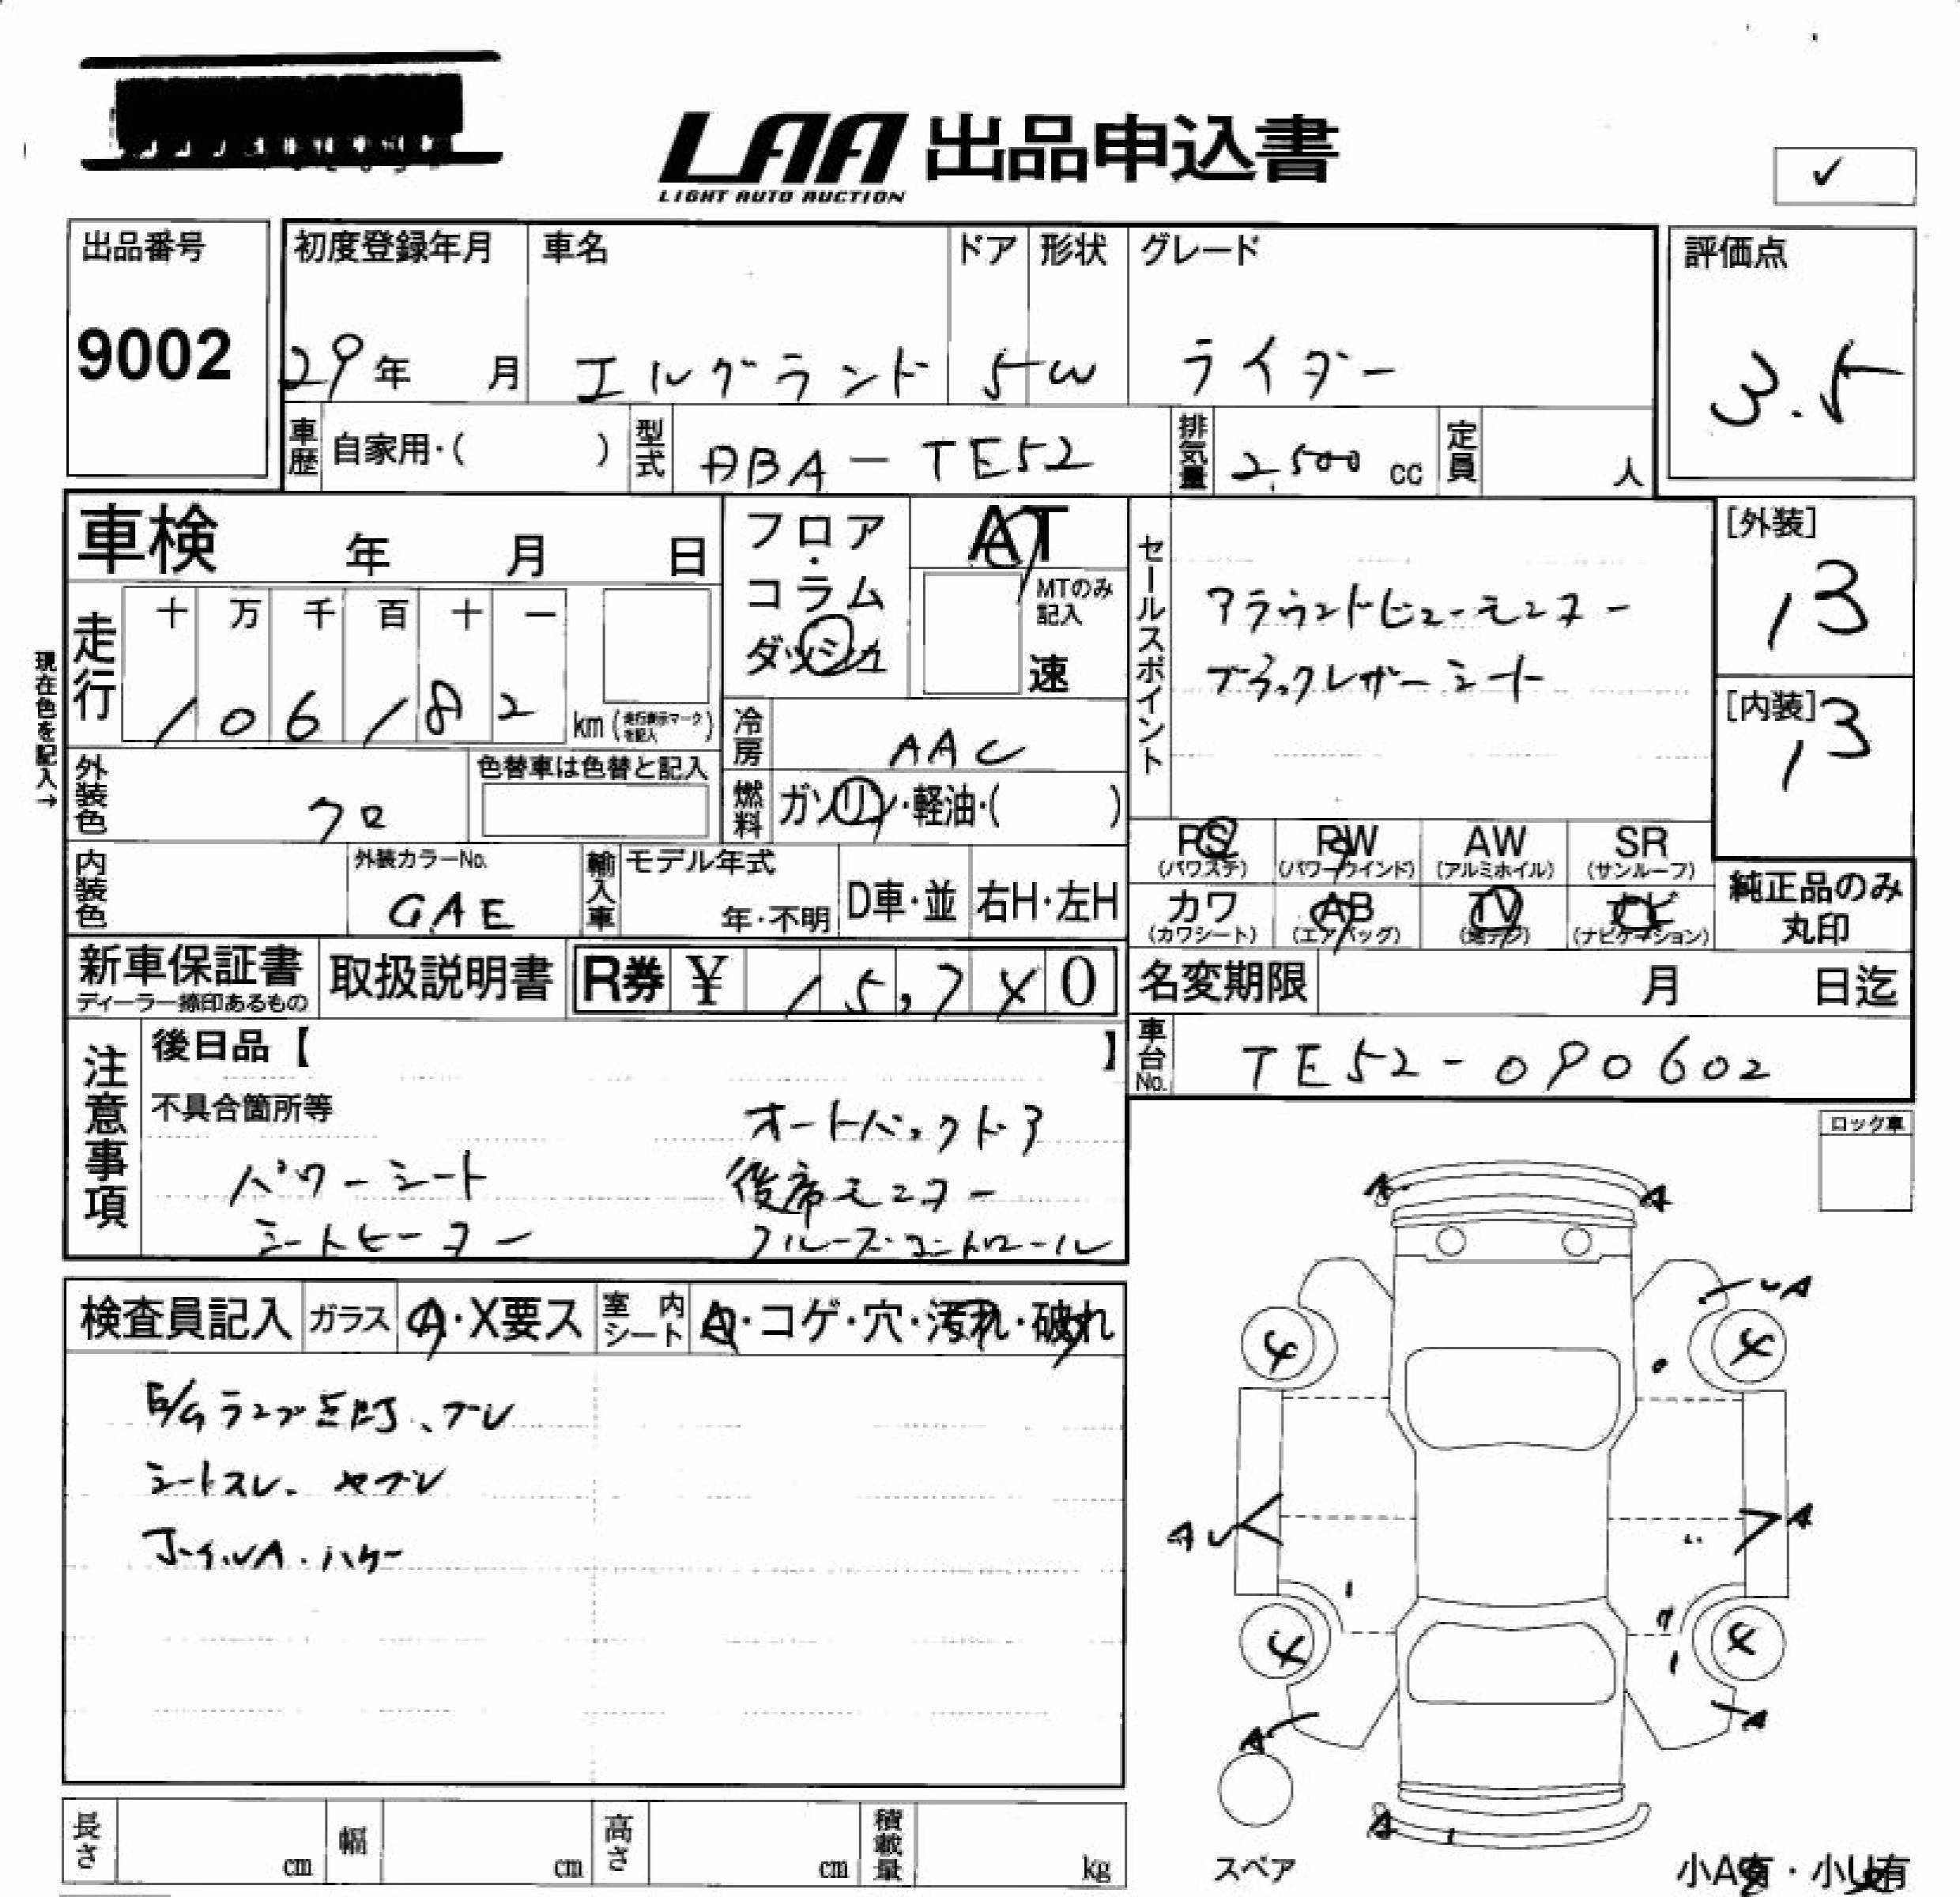 LAA 出品申込書
LIGHT AUTO AUCTION
✓
出品番号
9002
初度登録年月
29年 月
車名
エルグランド
ドア
5
形状
W
グレード
ライダー
評価点
3.5
車歴 自家用・( )
型式 ABA-TE52
排気量 2,500 cc
定員 人
車検 年 月 日
フロア・コラム
ダッシュ
AT
MTのみ記入
速
セールスポイント
アラウンドビューモニター
ブラックレザーシート
[外装]
13
[内装]
13
現在色を記入→
走行
十 万 千 百 十 一
1 0 6 1 8 2 km (走行表示マークを記入)
冷房 AAC
外装色 クロ
色替車は色替と記入
燃料 ガソリン・軽油・( )
PS (パワステ)
PW (パワーウインド)
AW (アルミホイル)
SR (サンルーフ)
カワ (カワシート)
AB (エアバッグ)
TV (地デジ)
ナビ (ナビゲーション)
純正品のみ
丸印
内装色
外装カラーNo.
GAE
輸入車
モデル年式
年・不明
D車・並
右H・左H
新車保証書
ディーラー捺印あるもの
取扱説明書
R券 ¥ 15,740
名変期限 月 日迄
車台No. TE52-090602
注意事項
後日品【 】
不具合箇所等
オートバックドア
パワーシート
後席モニター
シートヒーター
クルーズコントロール
ロック車
検査員記入
ガラス A・X要ス
室内シート A・コゲ・穴・汚れ・破れ
E/Gランプ点灯、ブレ
シートスレ、ヤブレ
A A
UA
4 4
AU A
4 4
A A
A
スペア
小A有・小U有
長さ cm
幅 cm
高さ cm
積載量 kg